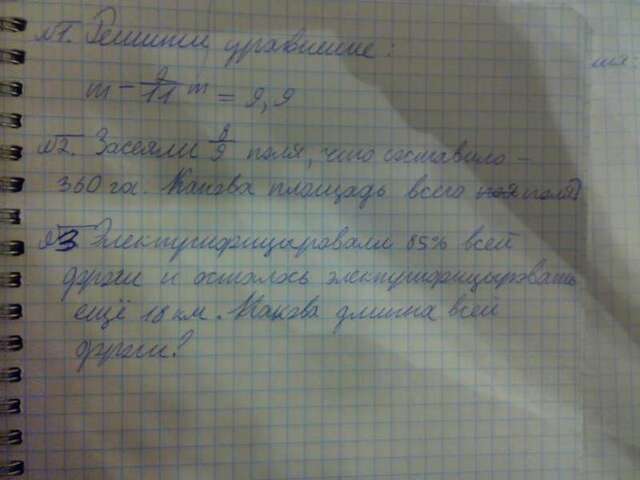 №1. Решити уравнение:
m - 9/11 m = 9,9
№2. Засеяли 8/9 поля, что составило -
360 га. Какова площадь всего поля?
№3 Электрифицировали 85% всей
дороги и осталось электрифицировать
ещё 18 км. Какова длинна всей
дороги?